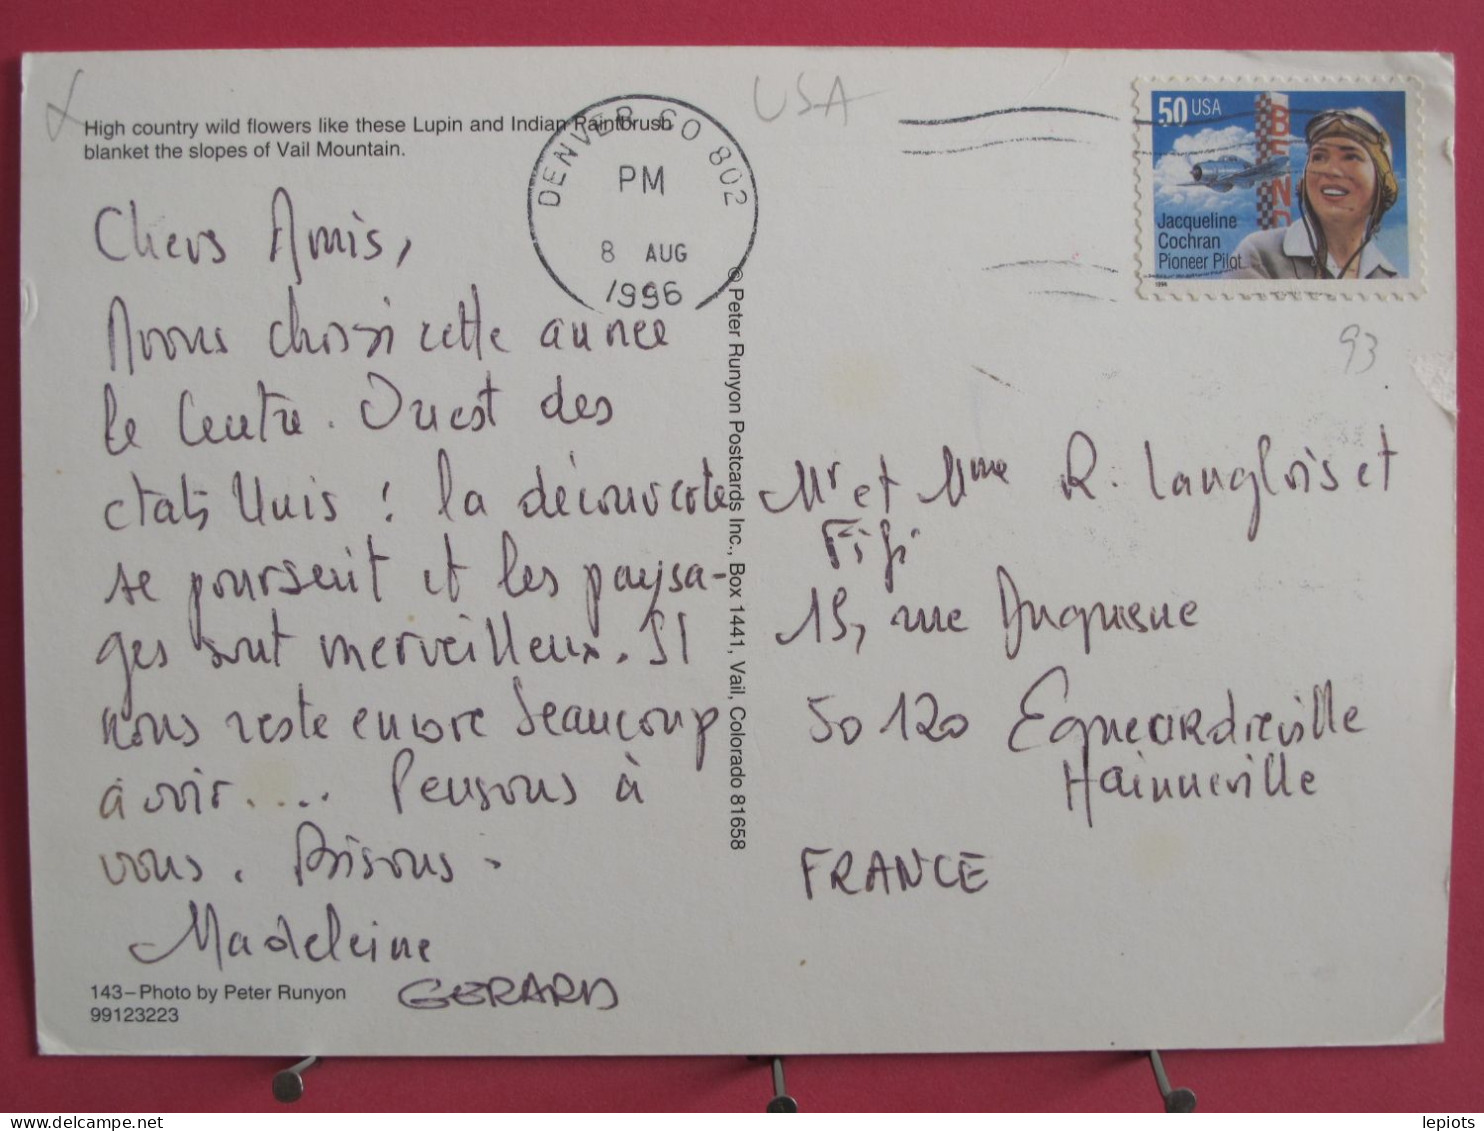 USA
High country wild flowers like these Lupin and Indian Paintbrush
blanket the slopes of Vail Mountain.
DENVER CO 802
PM
8 AUG
1996
50 USA
BEND
Jacqueline
Cochran
Pioneer Pilot
1996
93
Chers Amis,
Avons choisi cette année
le Centre. Ouest des
états Unis ! la découverte
se poursuit et les paysa-
ges sont merveilleux. Il
nous reste encore beaucoup
à voir.... Pensons à
vous. Bisous.
Madeleine
GERARD
143–Photo by Peter Runyon
99123223
© Peter Runyon Postcards Inc., Box 1441, Vail, Colorado 81658
Mr et Mme R. Langlois et
Fifi
15, rue Duquesne
50120 Equeurdreville
Hainneville
FRANCE
lepiots